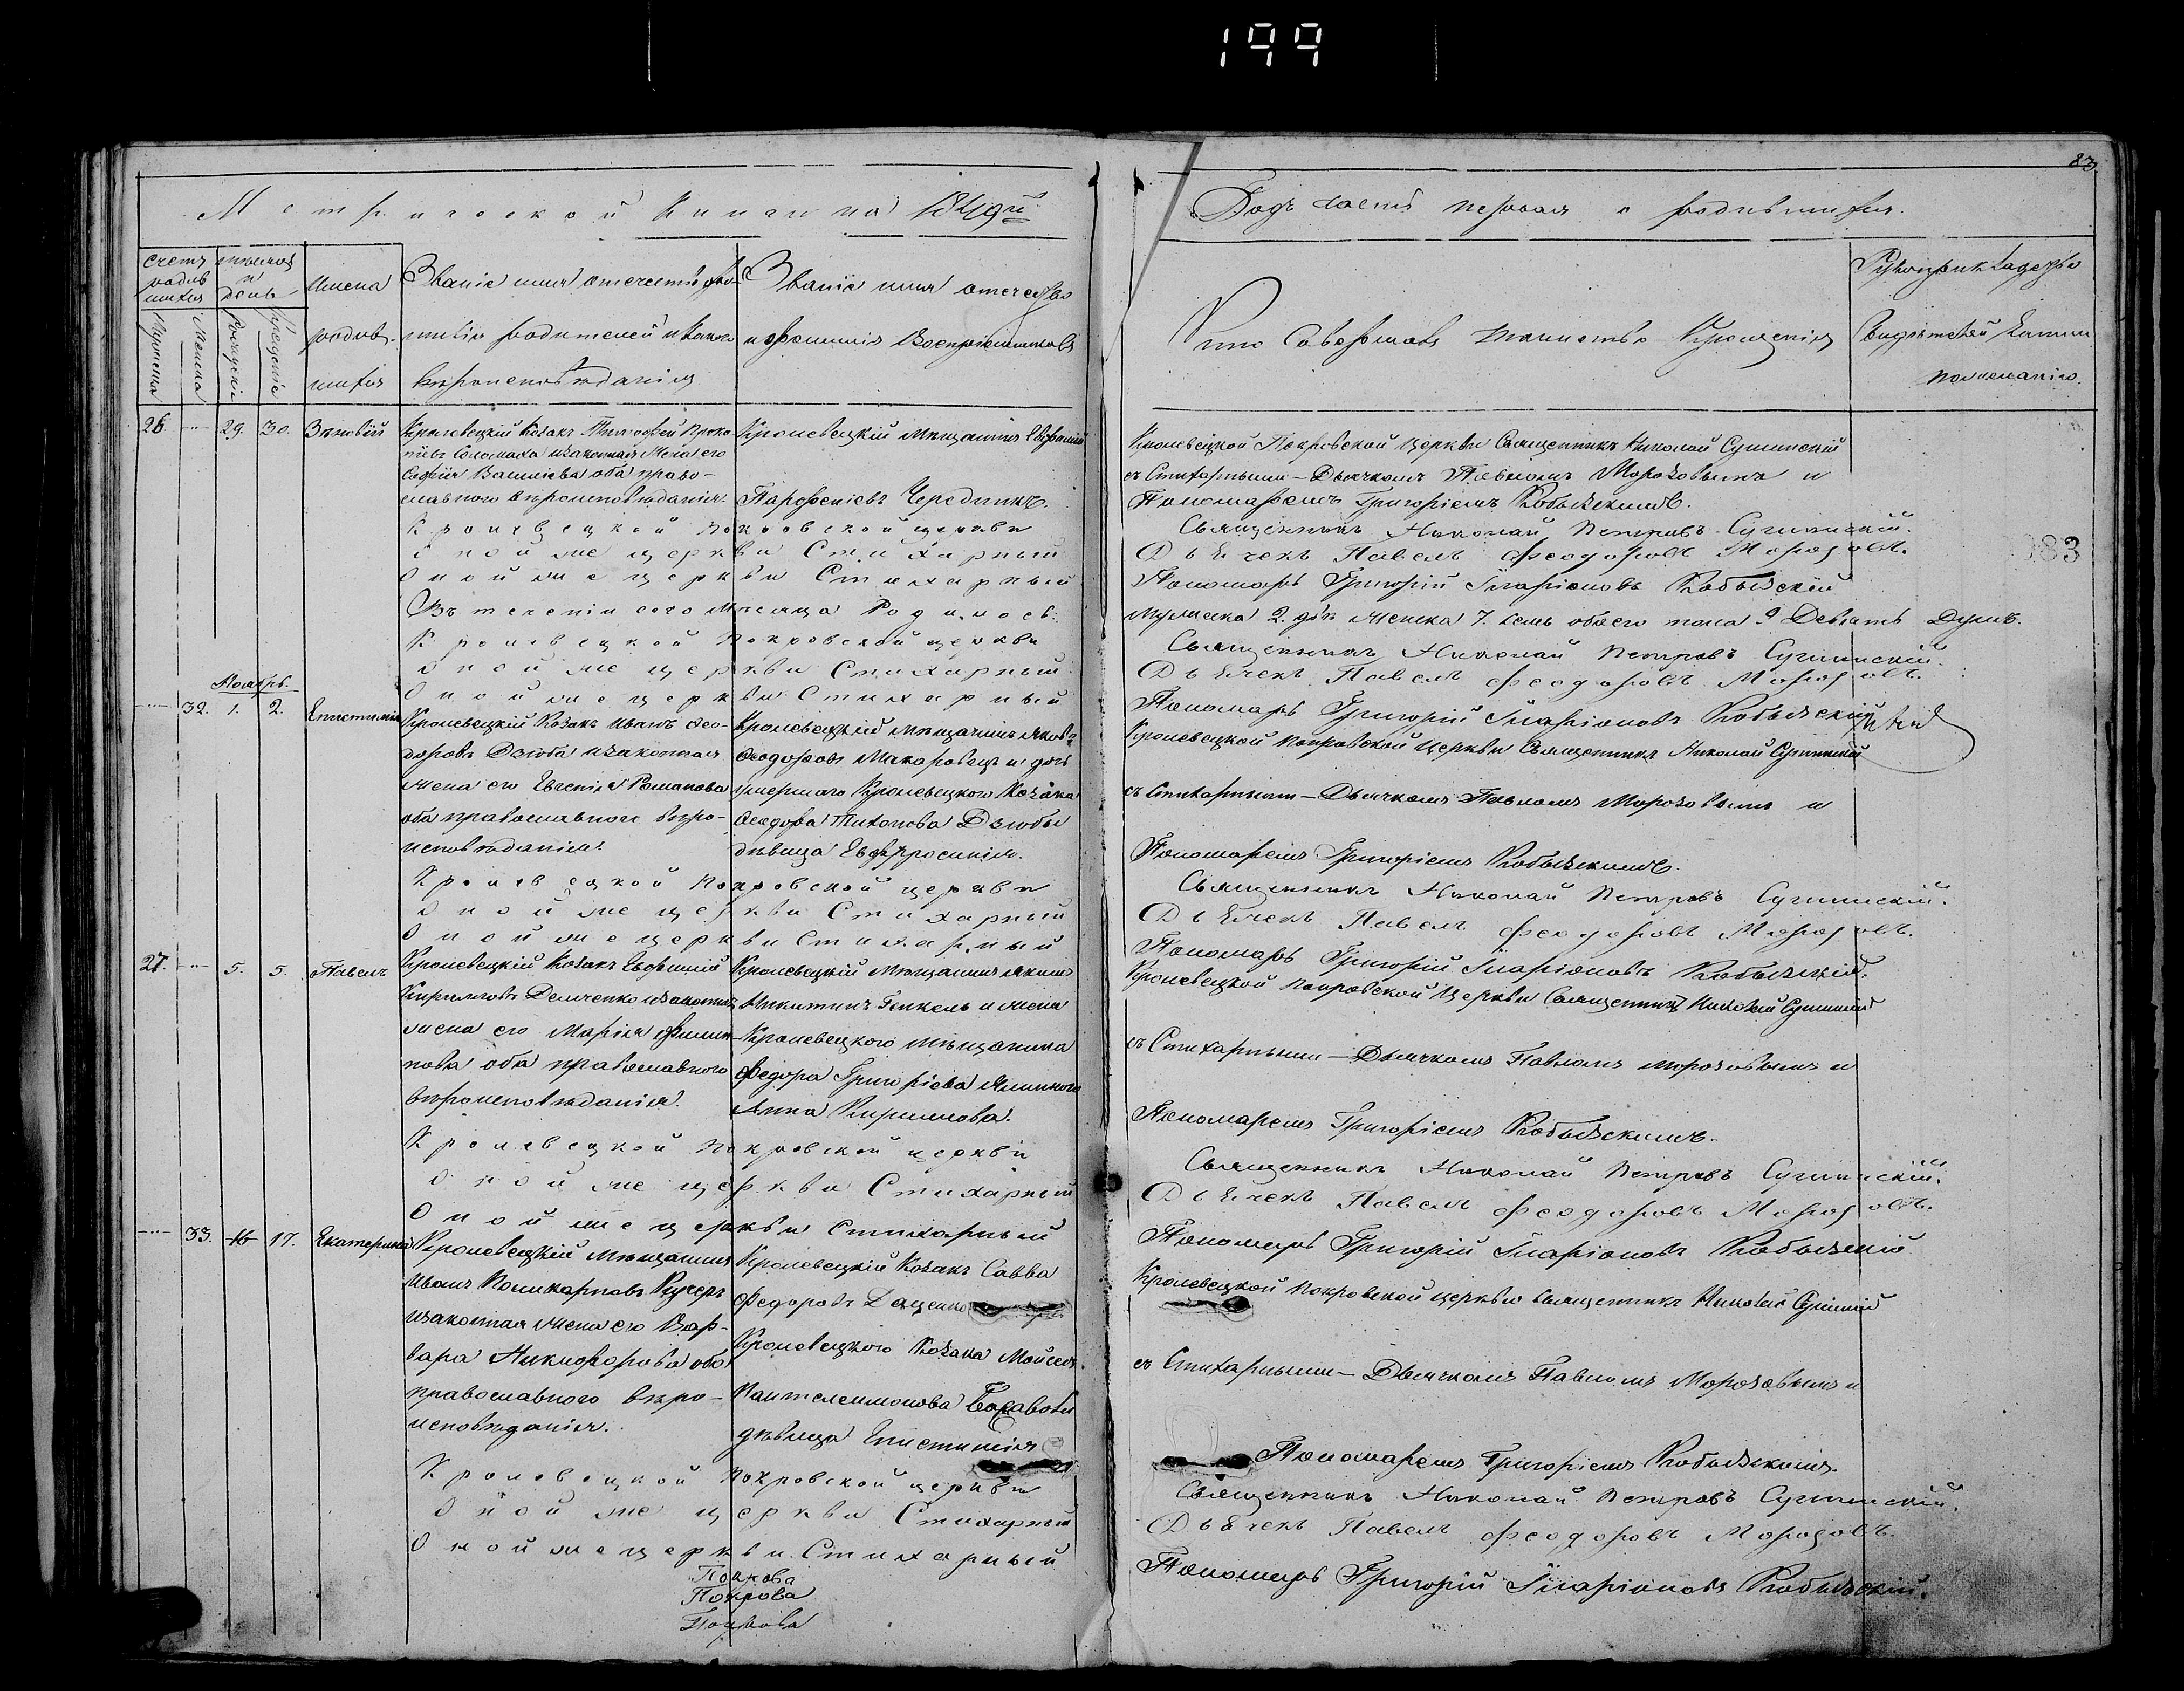 199
83
Метрической Книги на 1849й
Годъ часть первая о родившихся.
счетъ родившихся
Мужеска
Женска
мѣсяцъ и день
Рожденіе
Крещеніе
Имена родившихся
Званіе имя отечество фамилія родителей и какого вѣроисповѣданія
Званіе имя отечество и фамилія Воспріемниковъ
Кто Совершалъ таинство Крещенія
Рукоприкладство Свидѣтелей записи по желанію.
26. 29. 30. Зѣновій
Кролевецкій Козакъ Тимофей Проко
піевъ Соломаха изаконная Жена его
Софія Василіева оба право-
славного вѣроисповѣданія.
Кролевецкій Мѣщанинъ Евфимій
Парфеніевъ Чередникъ.
Кролевецкой Покровской Церкви Священникъ Николай Сушинскій
съ Стихарнымъ-Дьячкомъ Павломъ Морозовымъ и
Пономаремъ Григоріемъ Кобызскимъ.
Кролевецкой Покровской церкви Священникъ Николай Петровъ Сушинскій.
Оной же церкви Стихарный Дьячекъ Павелъ Феодоровъ Морозовъ.
Оной же церкви Стихарный Пономарь Григорій Иларіоновъ Кобызскій
Въ теченіи сего Мѣсяца Родилось: Мужеска 2. два Женска 7. семь обоего пола 9 Девять Душъ.
Кролевецкой Покровской церкви Священникъ Николай Петровъ Сушинскій.
Оной же церкви Стихарный Дьячекъ Павелъ Феодоровъ Морозовъ.
Оной же церкви Стихарный Пономарь Григорій Иларіоновъ Кобызскій
Ноябрь.
32. 1. 2. Епистимія
Кролевецкій Козакъ Иванъ Фео-
доровъ Дзюба изаконная
жена его Евгенія Романова
оба православного вѣро-
исповѣданія.
Кролевецкій Мѣщанинъ Яковъ
Феодоровъ Макаровецъ и дочь
умершаго Кролевецкого Козака
Феодора Тихонова Дзюбы
дѣвица Евфросинія.
Кролевецкой Покровской Церкви Священникъ Николай Сушинскій
съ Стихарнымъ-Дьячкомъ Павломъ Морозовымъ и
Пономаремъ Григоріемъ Кобызскимъ.
Кролевецкой Покровской церкви Священникъ Николай Петровъ Сушинскій.
Оной же церкви Стихарный Дьячекъ Павелъ Феодоровъ Морозовъ.
Оной же церкви Стихарный Пономарь Григорій Иларіоновъ Кобызскій.
27. 5. 5. Павелъ
Кролевецкій Козакъ Евфимій
Кирилловъ Демченко изаконная
жена его Марія Филип-
пова оба православного
вѣроисповѣданія.
Кролевецкій Мѣщанинъ Якимъ
Никитинъ Генкель и жена
Кролевецкого мѣщанина
Федора Григорієва
Анна Кирилова.
Кролевецкой Покровской Церкви Священникъ Николай Сушинскій
съ Стихарнымъ-Дьячкомъ Павломъ Морозовымъ и
Пономаремъ Григоріемъ Кобызскимъ.
Кролевецкой Покровской церкви Священникъ Николай Петровъ Сушинскій.
Оной же церкви Стихарный Дьячекъ Павелъ Феодоровъ Морозовъ.
Оной же церкви Стихарный Пономарь Григорій Иларіоновъ Кобызскій
33. 16 17. Екатерина
Кролевецкій Мѣщанинъ
Иванъ Поликарповъ Кучеръ
изаконная жена его Вар-
вара Никифорова оба
православного вѣро-
исповѣданія.
Кролевецкій Козакъ Савва
Федоровъ Даценко
Кролевецкого Козака Мойсея
Пантелеимонова
дѣвица Епистимія
Кролевецкой Покровской церкви Священникъ Николай Сушинскій
съ Стихарнымъ-Дьячкомъ Павломъ Морозовымъ и
Пономаремъ Григоріемъ Кобызскимъ.
Кролевецкой Покровской церкви Священникъ Николай Петровъ Сушинскій.
Оной же церкви Стихарный Дьячекъ Павелъ Феодоровъ Морозовъ.
Оной же церкви Стихарный Пономарь Григорій Иларіоновъ Кобызскій.
Покрова
Покрова
Покрова
083